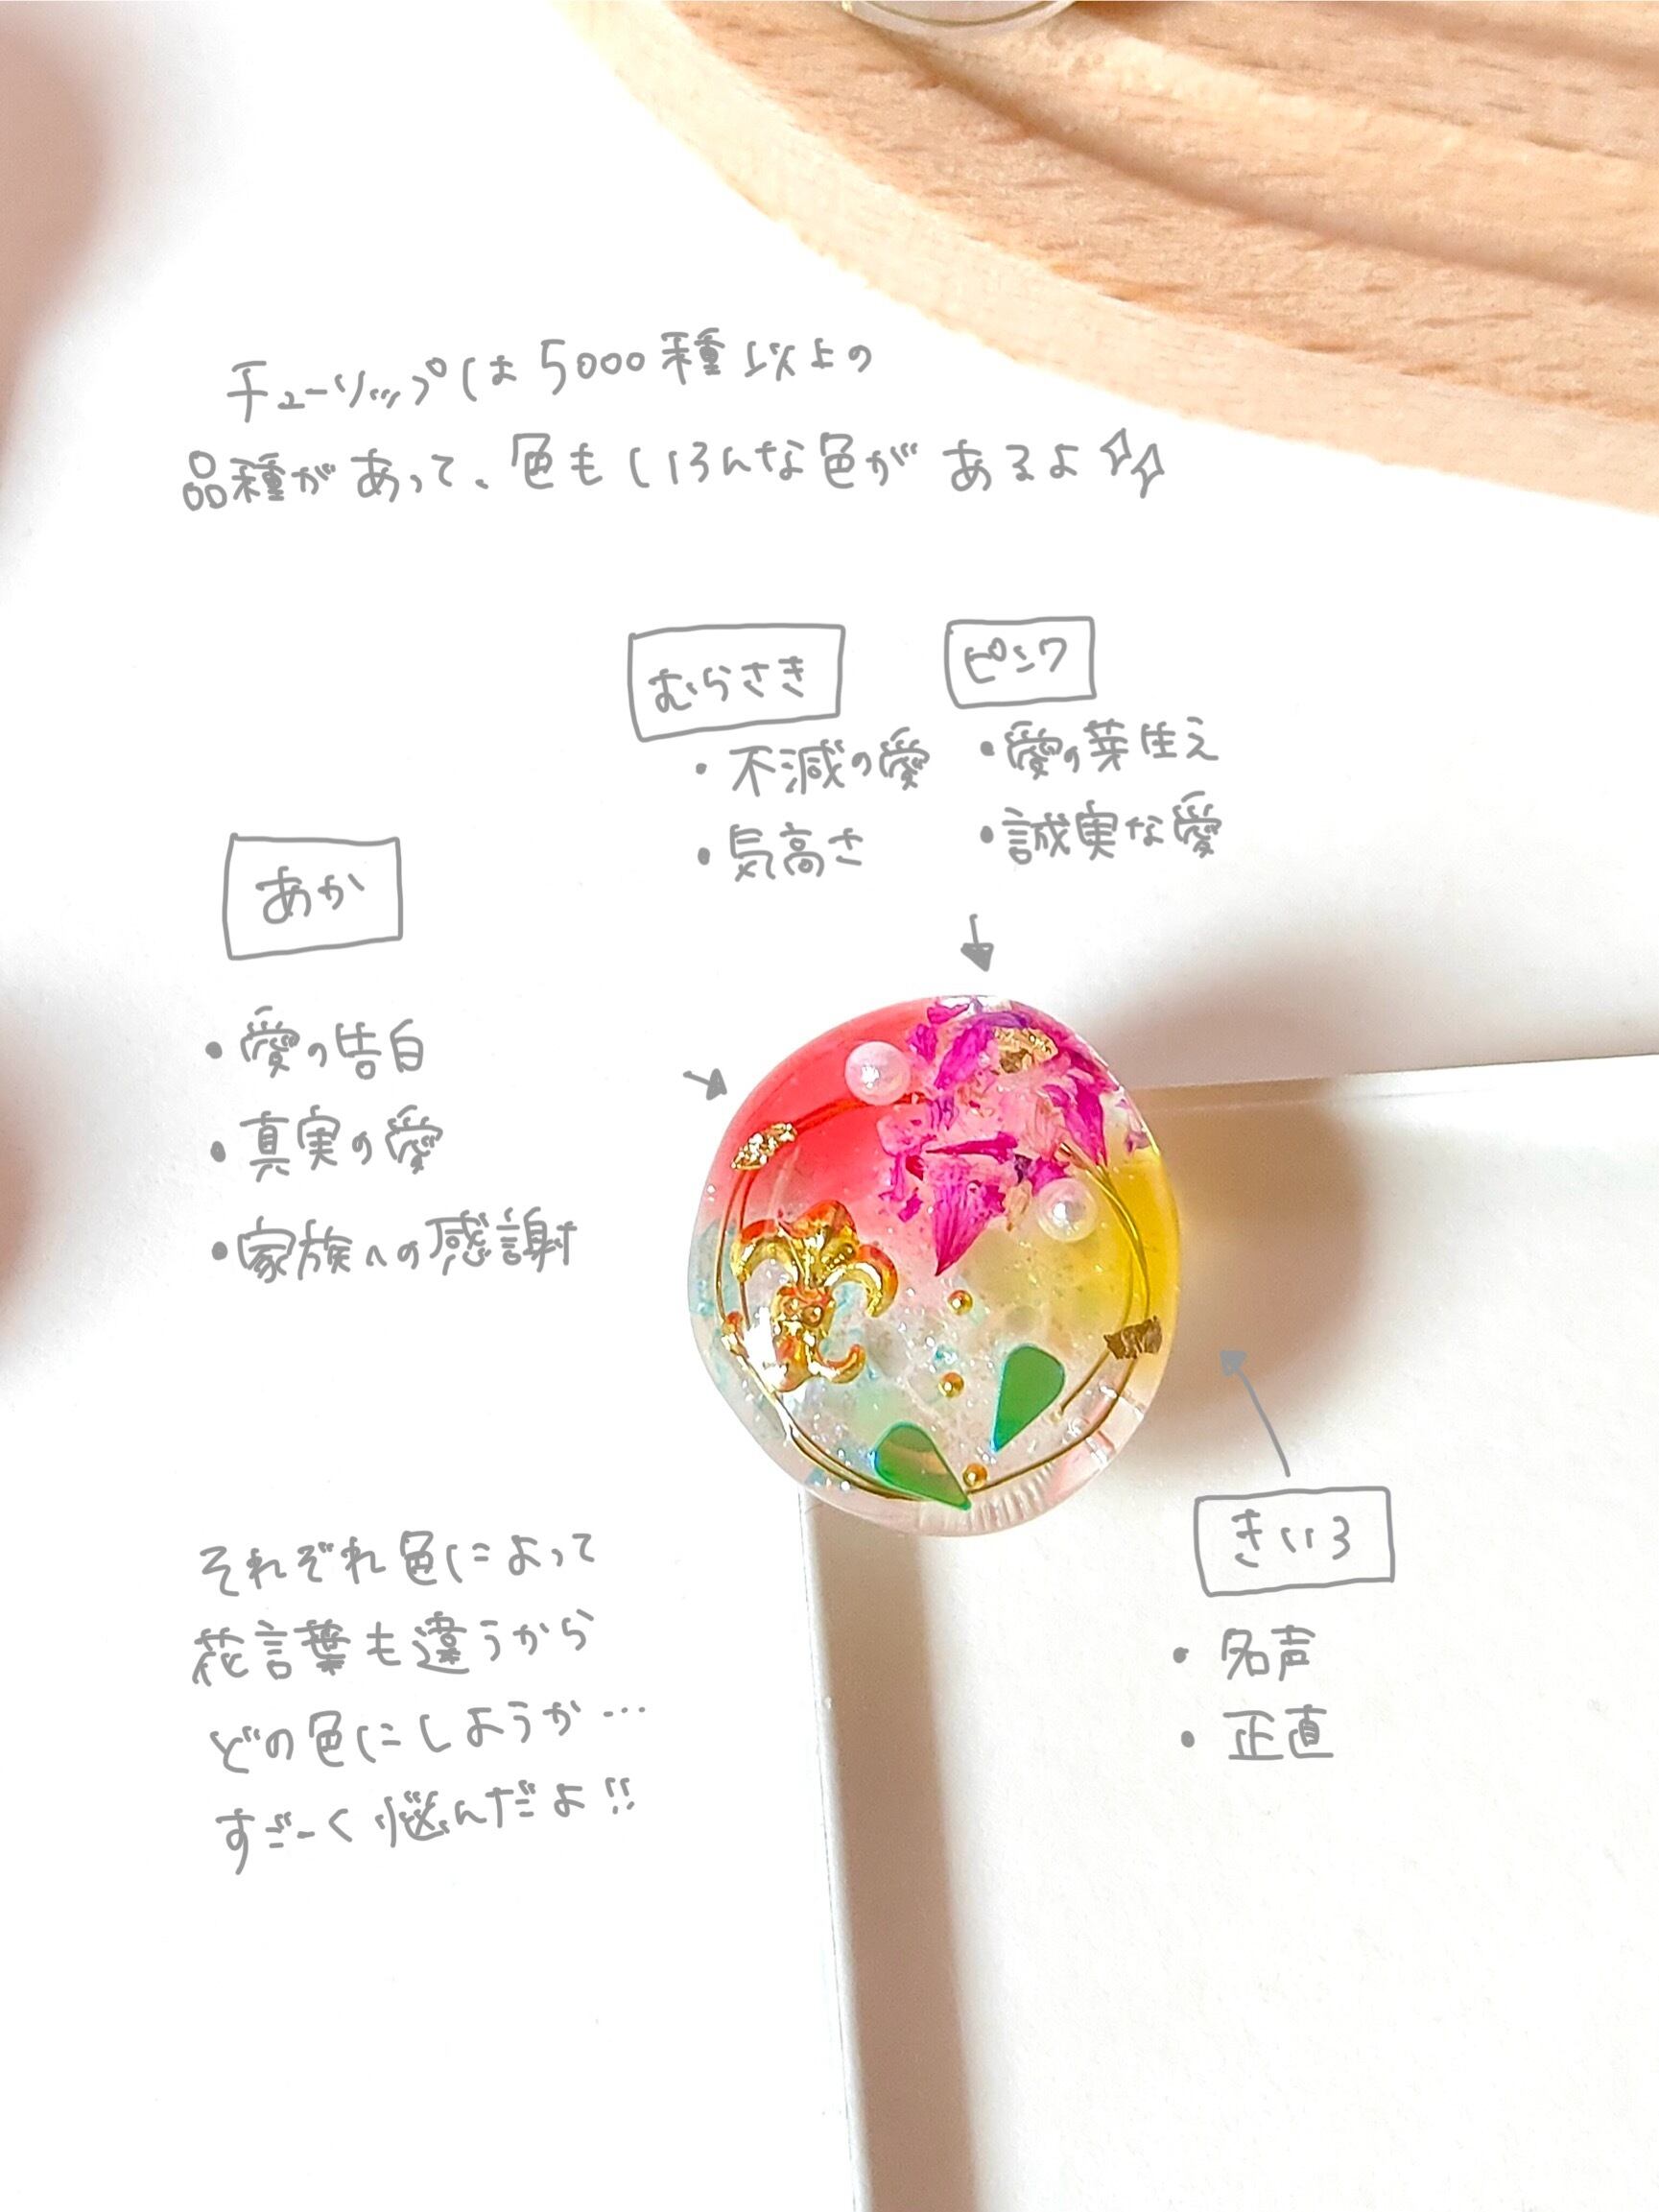 チューリップは5000種以上の
品種があって、色もいろんな色があるよ
むらさき
・不滅の愛
・気高さ
ピンク
・愛の芽生え
・誠実な愛
あか
・愛の告白
・真実の愛
・家族への感謝
きいろ
・名声
・正直
それぞれ色によって
花言葉も違うから
どの色にしようか…
すご~く悩んだよ!!